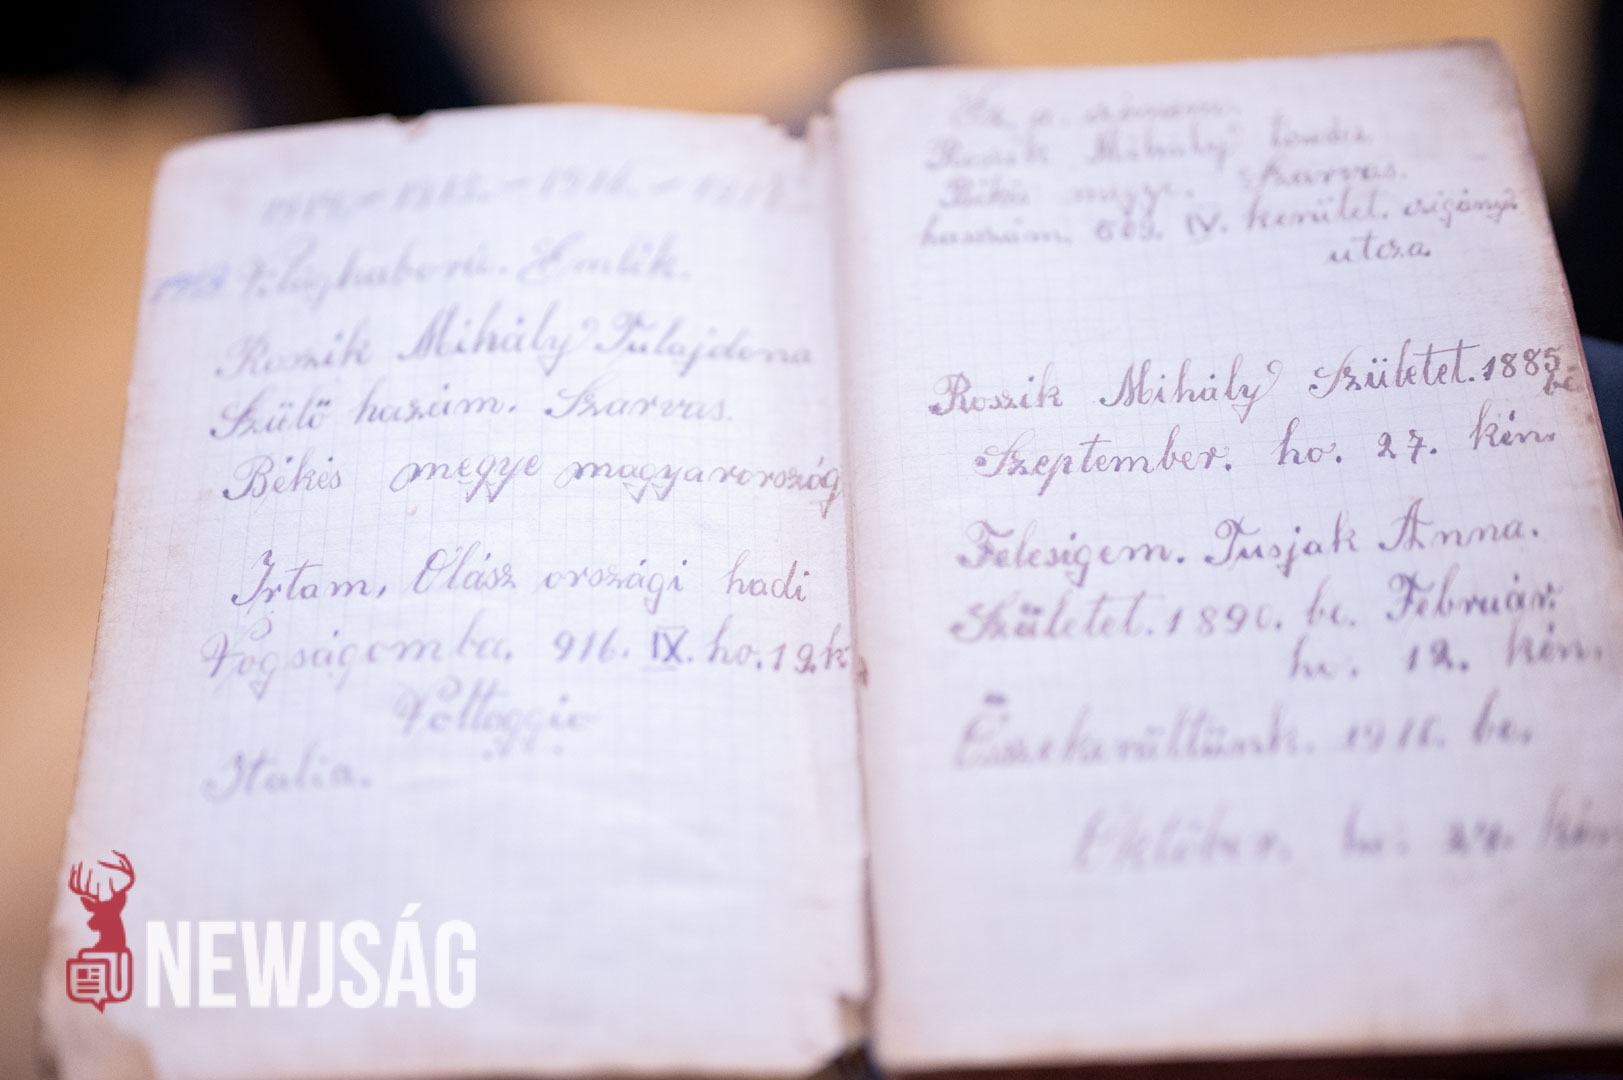 1914 – 1915. – 1916. – 1917.
1918 Világháború. Emlék.
Roszik Mihály Tulajdona
Szülő hazám. Szarvas.
Békés megye magyarország
Irtam, Olász országi hadi
Fogságomba. 916. IX. ho. 12. k
Voltaggio
Italia.
Ez a cimem.
Roszik Mihály
Békés megye. Szarvas.
hasszám. 569. IV. kerület. cigányi
utcza.
Roszik Mihály Született. 1885
be.
Szeptember. ho. 27. kén.
Feleségem. Tusjak Anna.
Született. 1890. be. Február.
ho. 12. kén.
Összekerültünk. 1911. be.
Október. ho. kén
NEWJSÁG